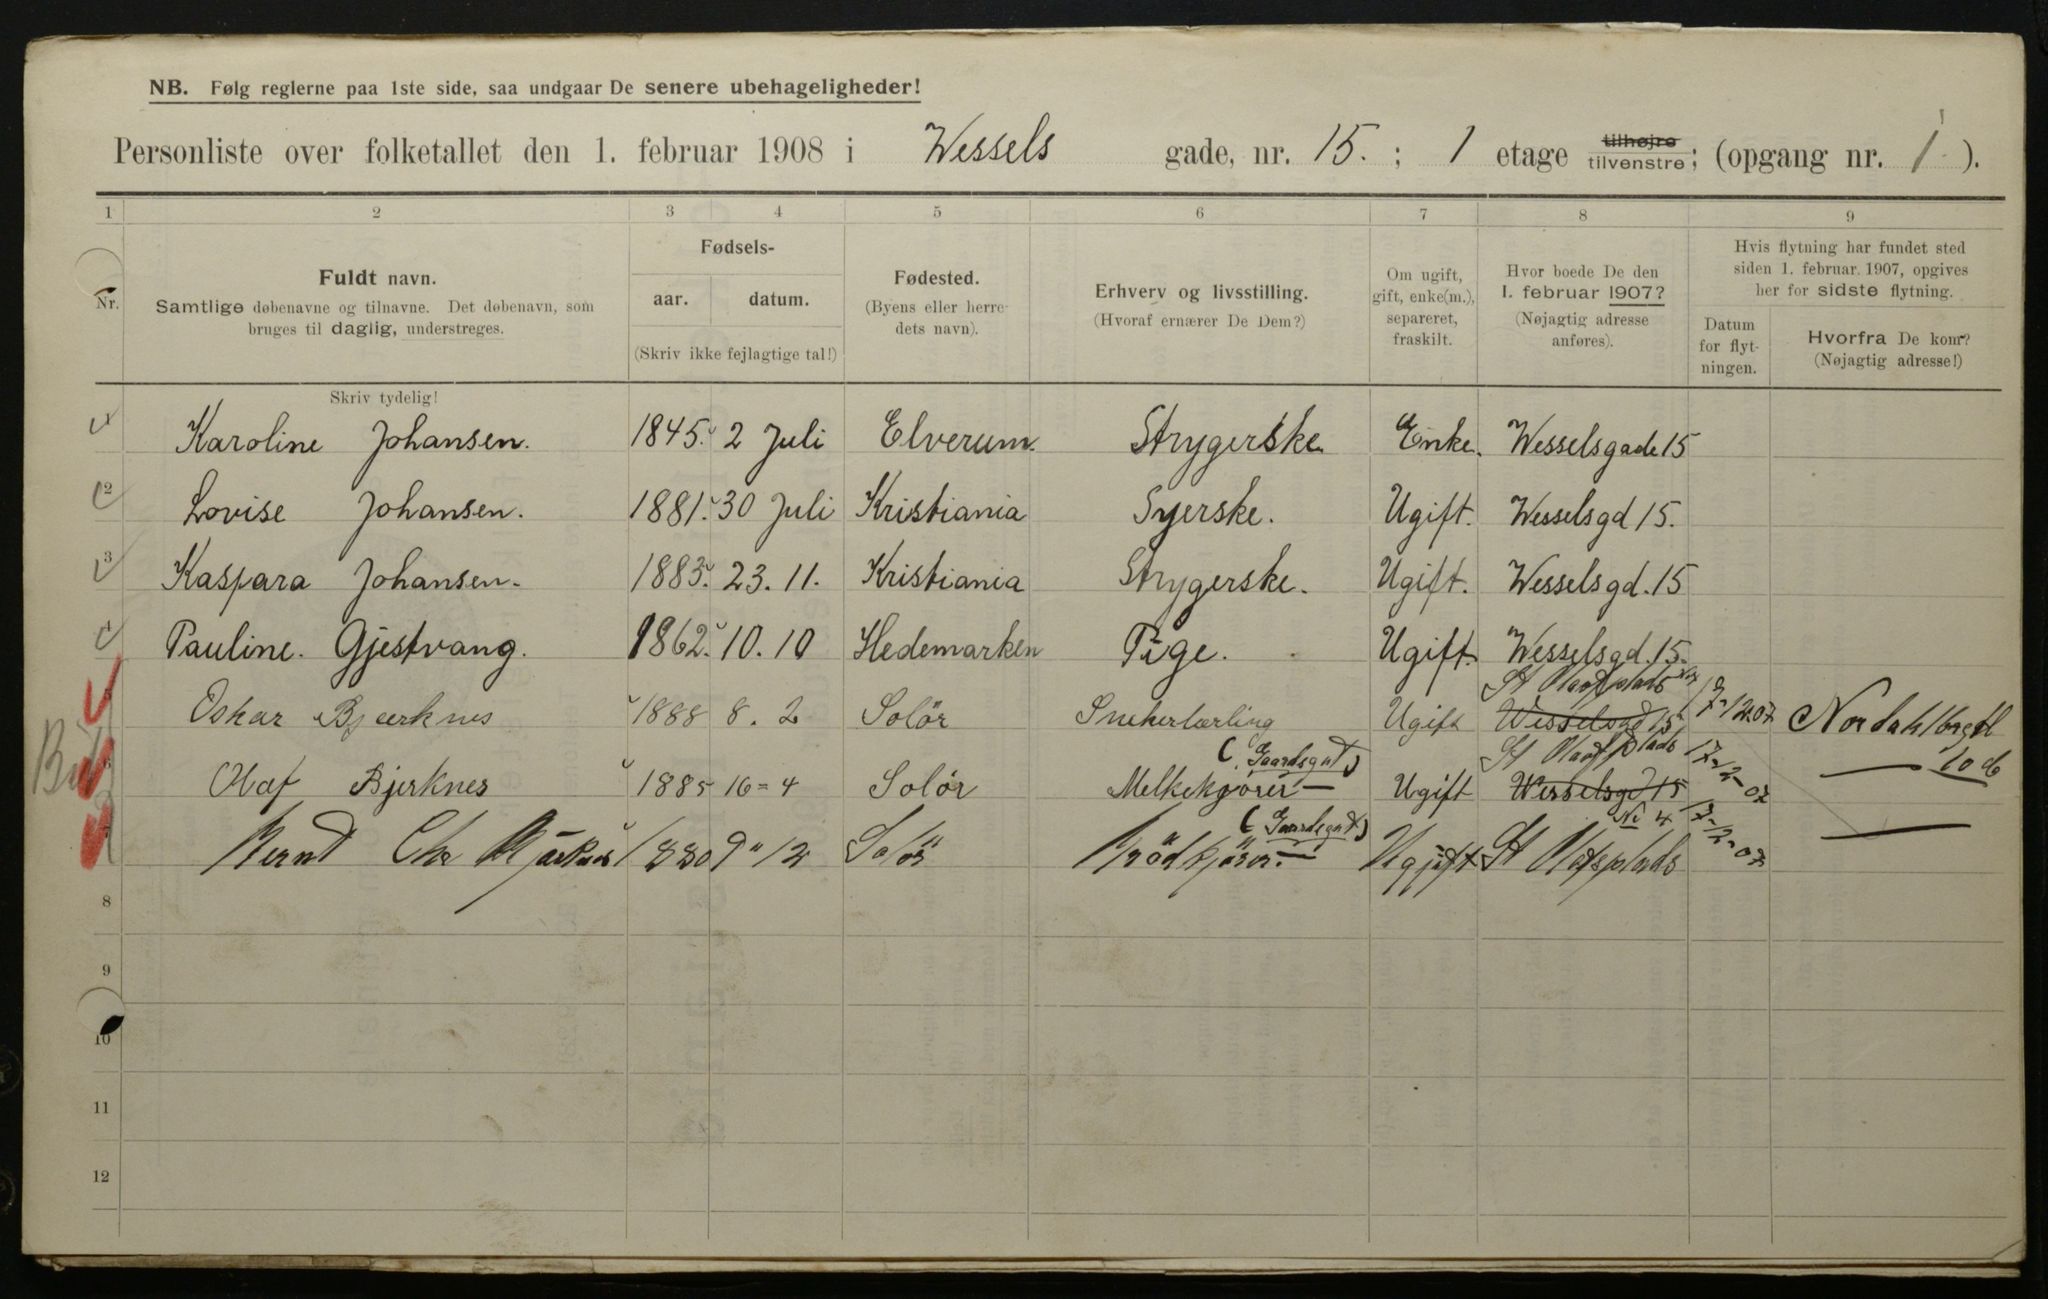 NB. Følg reglerne paa 1ste side, saa undgaar De senere ubehageligheder!
Personliste over folketallet den 1. februar 1908 i Wessels gade, nr. 15. ; 1 etage tilhøjre tilvenstre; (opgang nr. 1 ).
1 2 3 4 5 6 7 8 9
Nr.
Fuldt navn.
Samtlige døbenavne og tilnavne. Det døbenavn, som
bruges til daglig, understreges.
Skriv tydelig!
Fødsels-
aar. datum.
(Skriv ikke fejlagtige tal!)
Fødested.
(Byens eller herre-
dets navn).
Erhverv og livsstilling.
(Hvoraf ernærer De Dem?)
Om ugift,
gift, enke(m.),
separeret,
fraskilt.
Hvor boede De den
1. februar 1907?
(Nøjagtig adresse
anføres).
Hvis flytning har fundet sted
siden 1. februar. 1907, opgives
her for sidste flytning.
Datum
for flyt-
ningen.
Hvorfra De kom?
(Nøjagtig adresse!)
1 Karoline Johansen. 1845. 2 Juli Elverum. Strygerske Enke. Wesselsgade 15
2 Lovise Johansen. 1881. 30 Juli Kristiania Syerske. Ugift. Wesselsgd 15.
3 Kaspara Johansen. 1883. 23. 11. Kristiania Strygerske. Ugift. Wesselsgd. 15
4 Pauline. Gjestvang. 1862. 10. 10 Hedemarken Pige. Ugift. Wesselsgd. 15.
St Olafsplads
5 Oskar Bjerknes 1888 8. 2 Solör Snekerlærling Ugift Wesselsgd 15 17-12.07 Nordahlbrgtl
(Gaardsgut) St Olafsplads
6 Olaf Bjerknes 1885 16=4 Solör Melkekjörer — Ugift Wesselsgd 15 17-12-07 — 10 d
(Gaardsgut) No 4
7 Bernt Chr Bjerknes 1880 9" 12 Solör Brödkjörer. — Ugift St Olafsplads 17-12-07 —
8
9
10
11
12